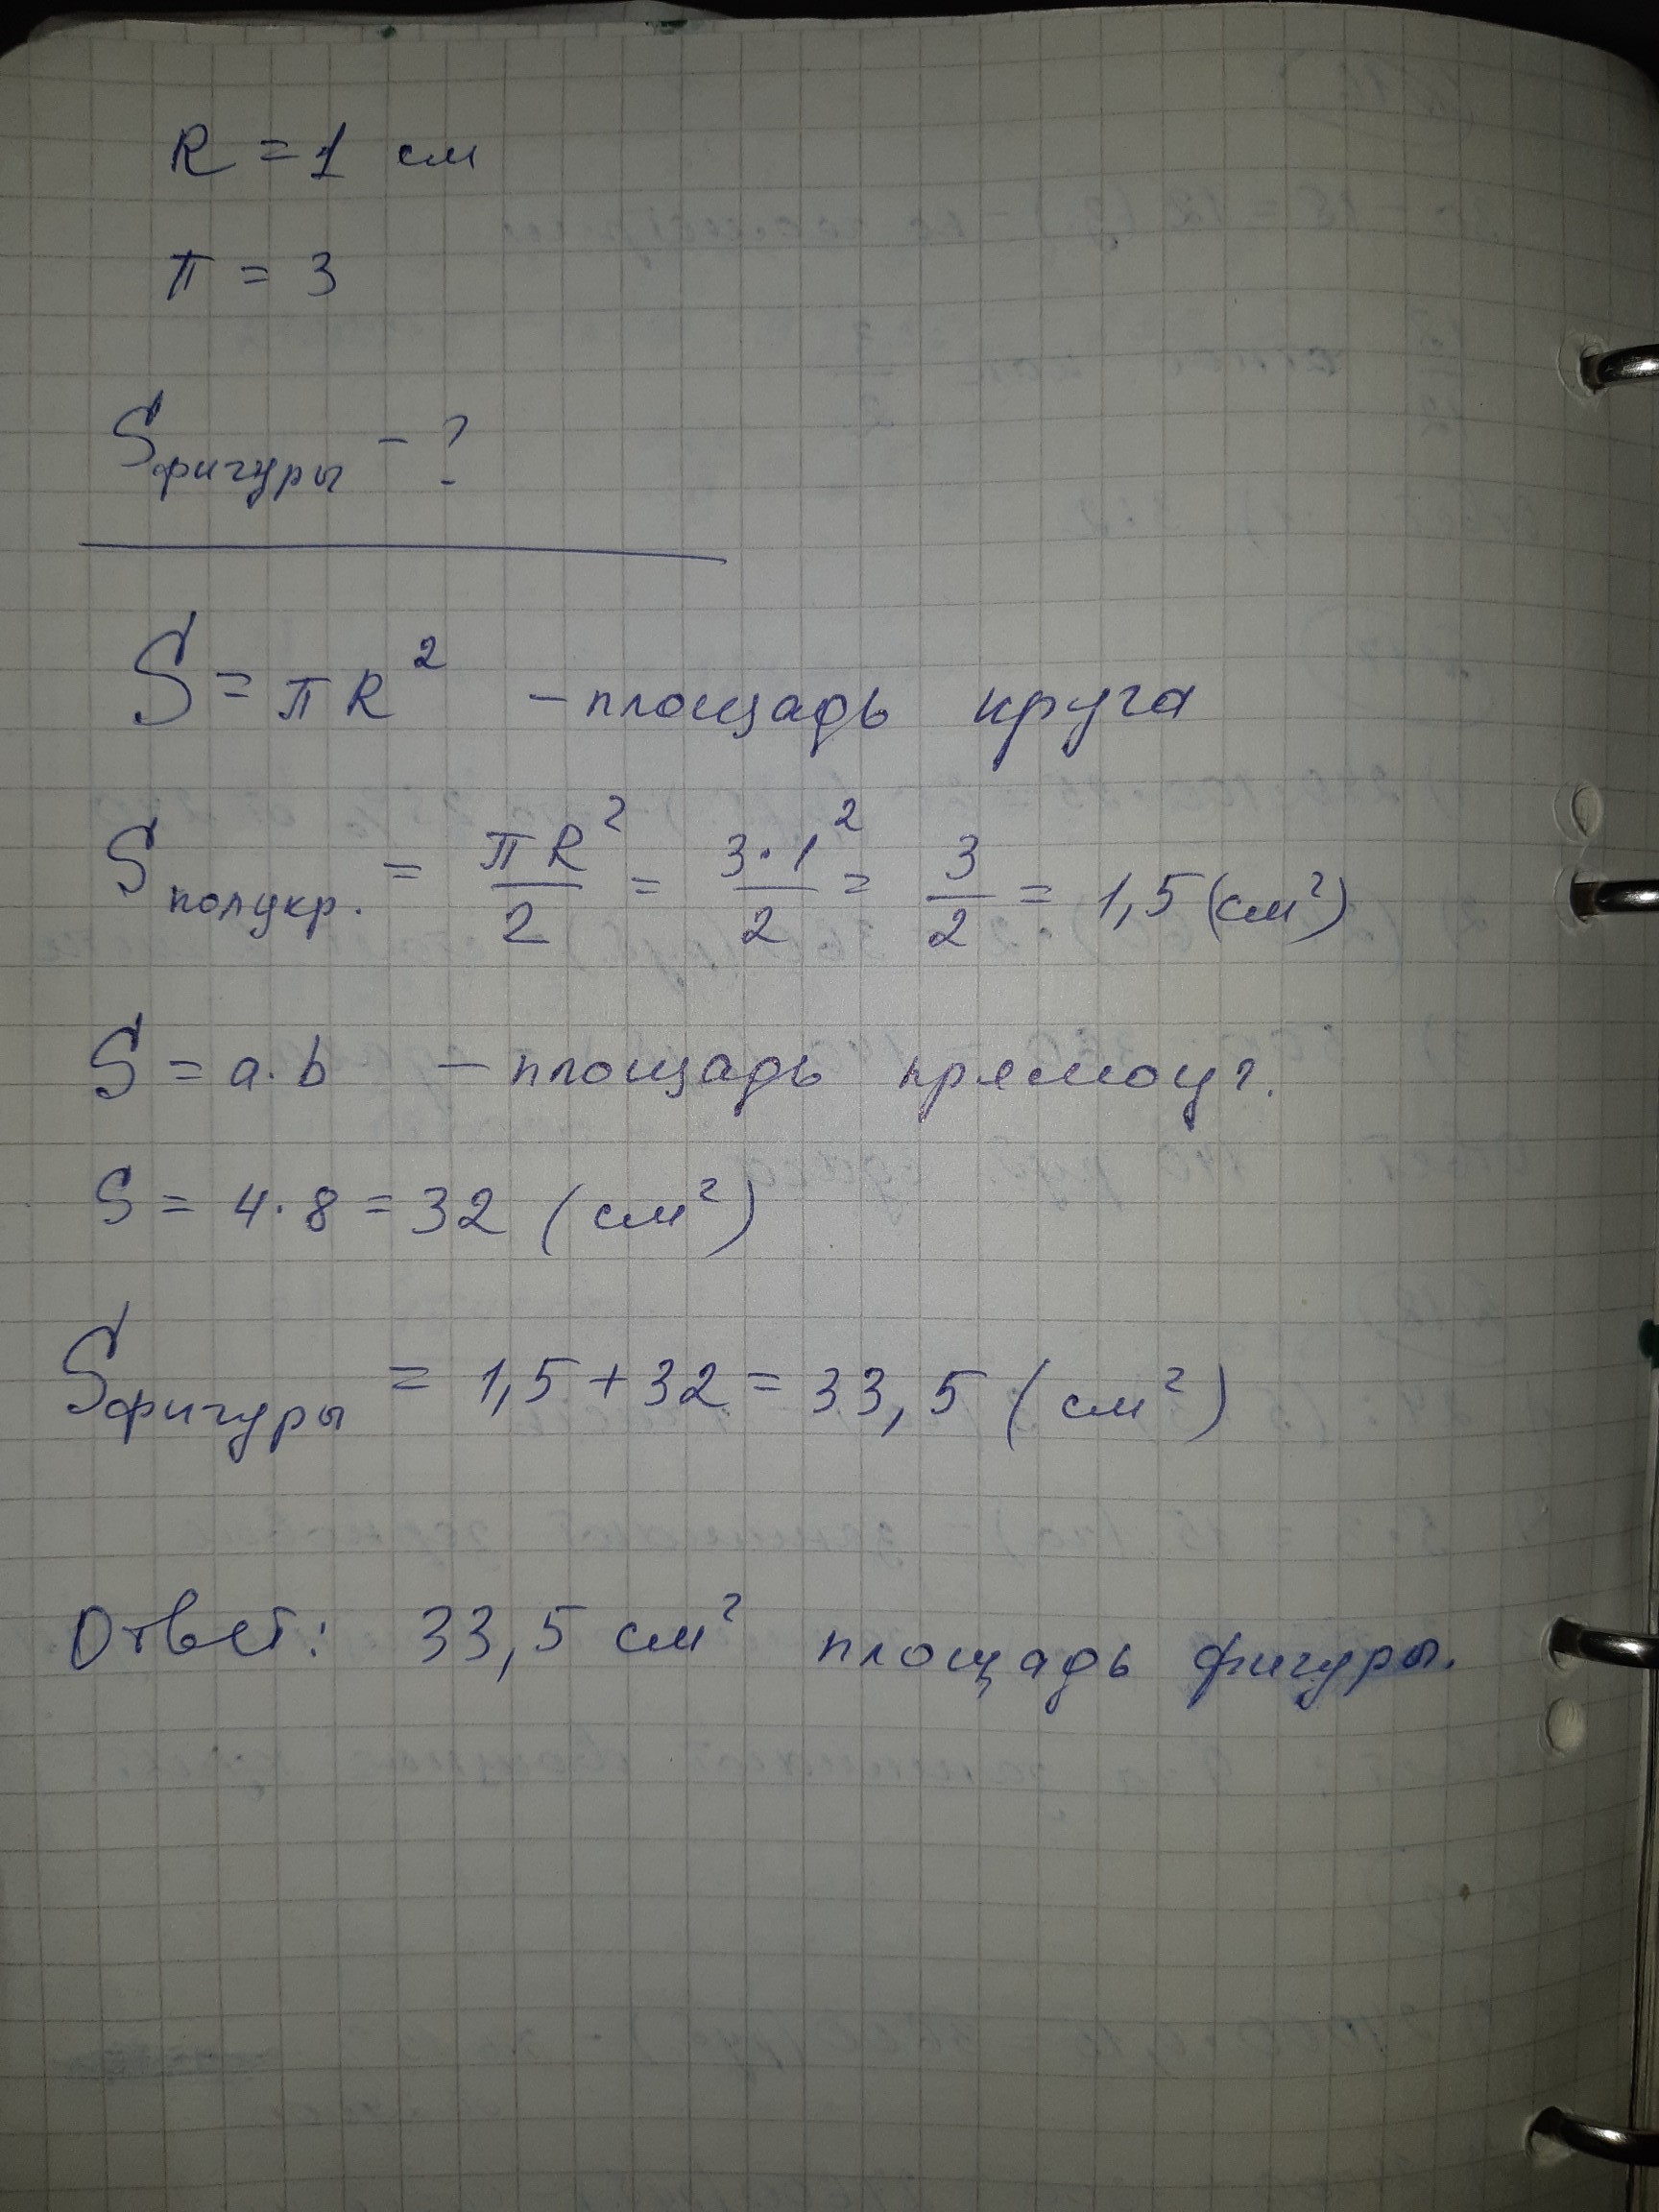 R = 1 см
π = 3
Sфигуры - ?
S = πR² - площадь круга
Sполукр. = πR²/2 = 3·1²/2 = 3/2 = 1,5 (см²)
S = a·b - площадь прямоуг.
S = 4·8 = 32 (см²)
Sфигуры = 1,5 + 32 = 33,5 (см²)
Ответ: 33,5 см² площадь фигуры.